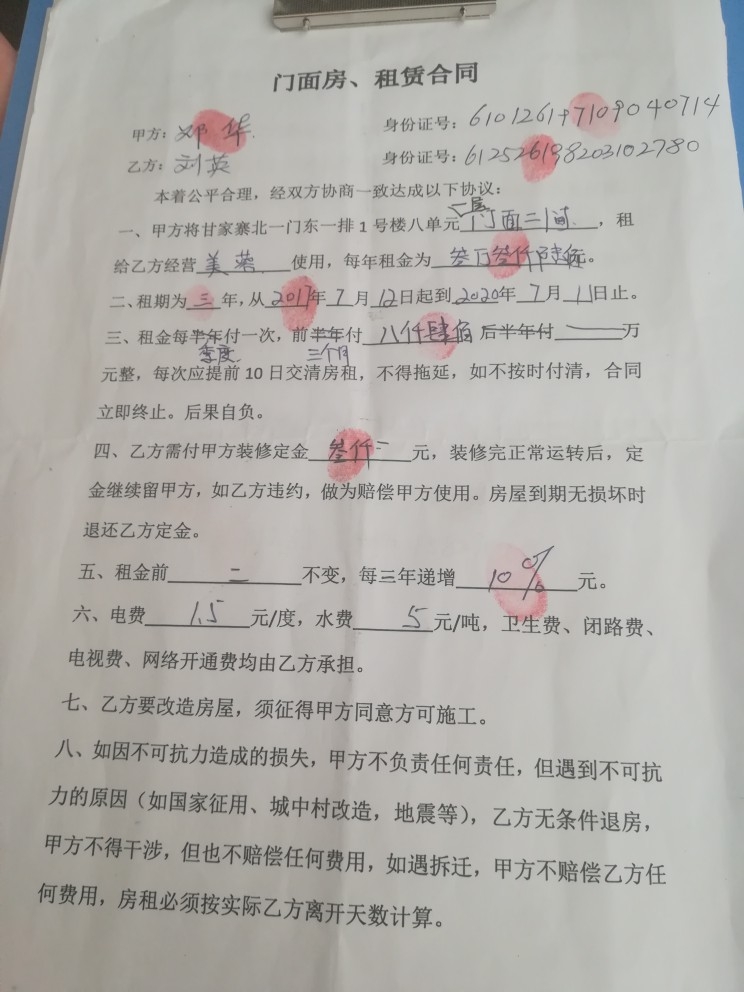 门面房、租赁合同
甲方：邓华. 身份证号：610126197109040714
乙方：刘英 身份证号：612526198203102780
本着公平合理，经双方协商一致达成以下协议：
一层
一、甲方将甘家寨北一门东一排1号楼八单元门面二间.，租
给乙方经营美蓉使用，每年租金为叁万叁仟陆佰。
二、租期为三年，从2017年7月12日起到2020年7月11日止。
三、租金每半年付一次，前半年付八仟肆佰后半年付万
季度 三个月
元整，每次应提前10日交清房租，不得拖延，如不按时付清，合同
立即终止。后果自负。
四、乙方需付甲方装修定金叁仟元，装修完正常运转后，定
金继续留甲方，如乙方违约，做为赔偿甲方使用。房屋到期无损坏时
退还乙方定金。
五、租金前二不变，每三年递增10%元。
六、电费1.5元/度，水费5元/吨，卫生费、闭路费、
电视费、网络开通费均由乙方承担。
七、乙方要改造房屋，须征得甲方同意方可施工。
八、如因不可抗力造成的损失，甲方不负责任何责任，但遇到不可抗
力的原因（如国家征用、城中村改造，地震等），乙方无条件退房，
甲方不得干涉，但也不赔偿任何费用，如遇拆迁，甲方不赔偿乙方任
何费用，房租必须按实际乙方离开天数计算。